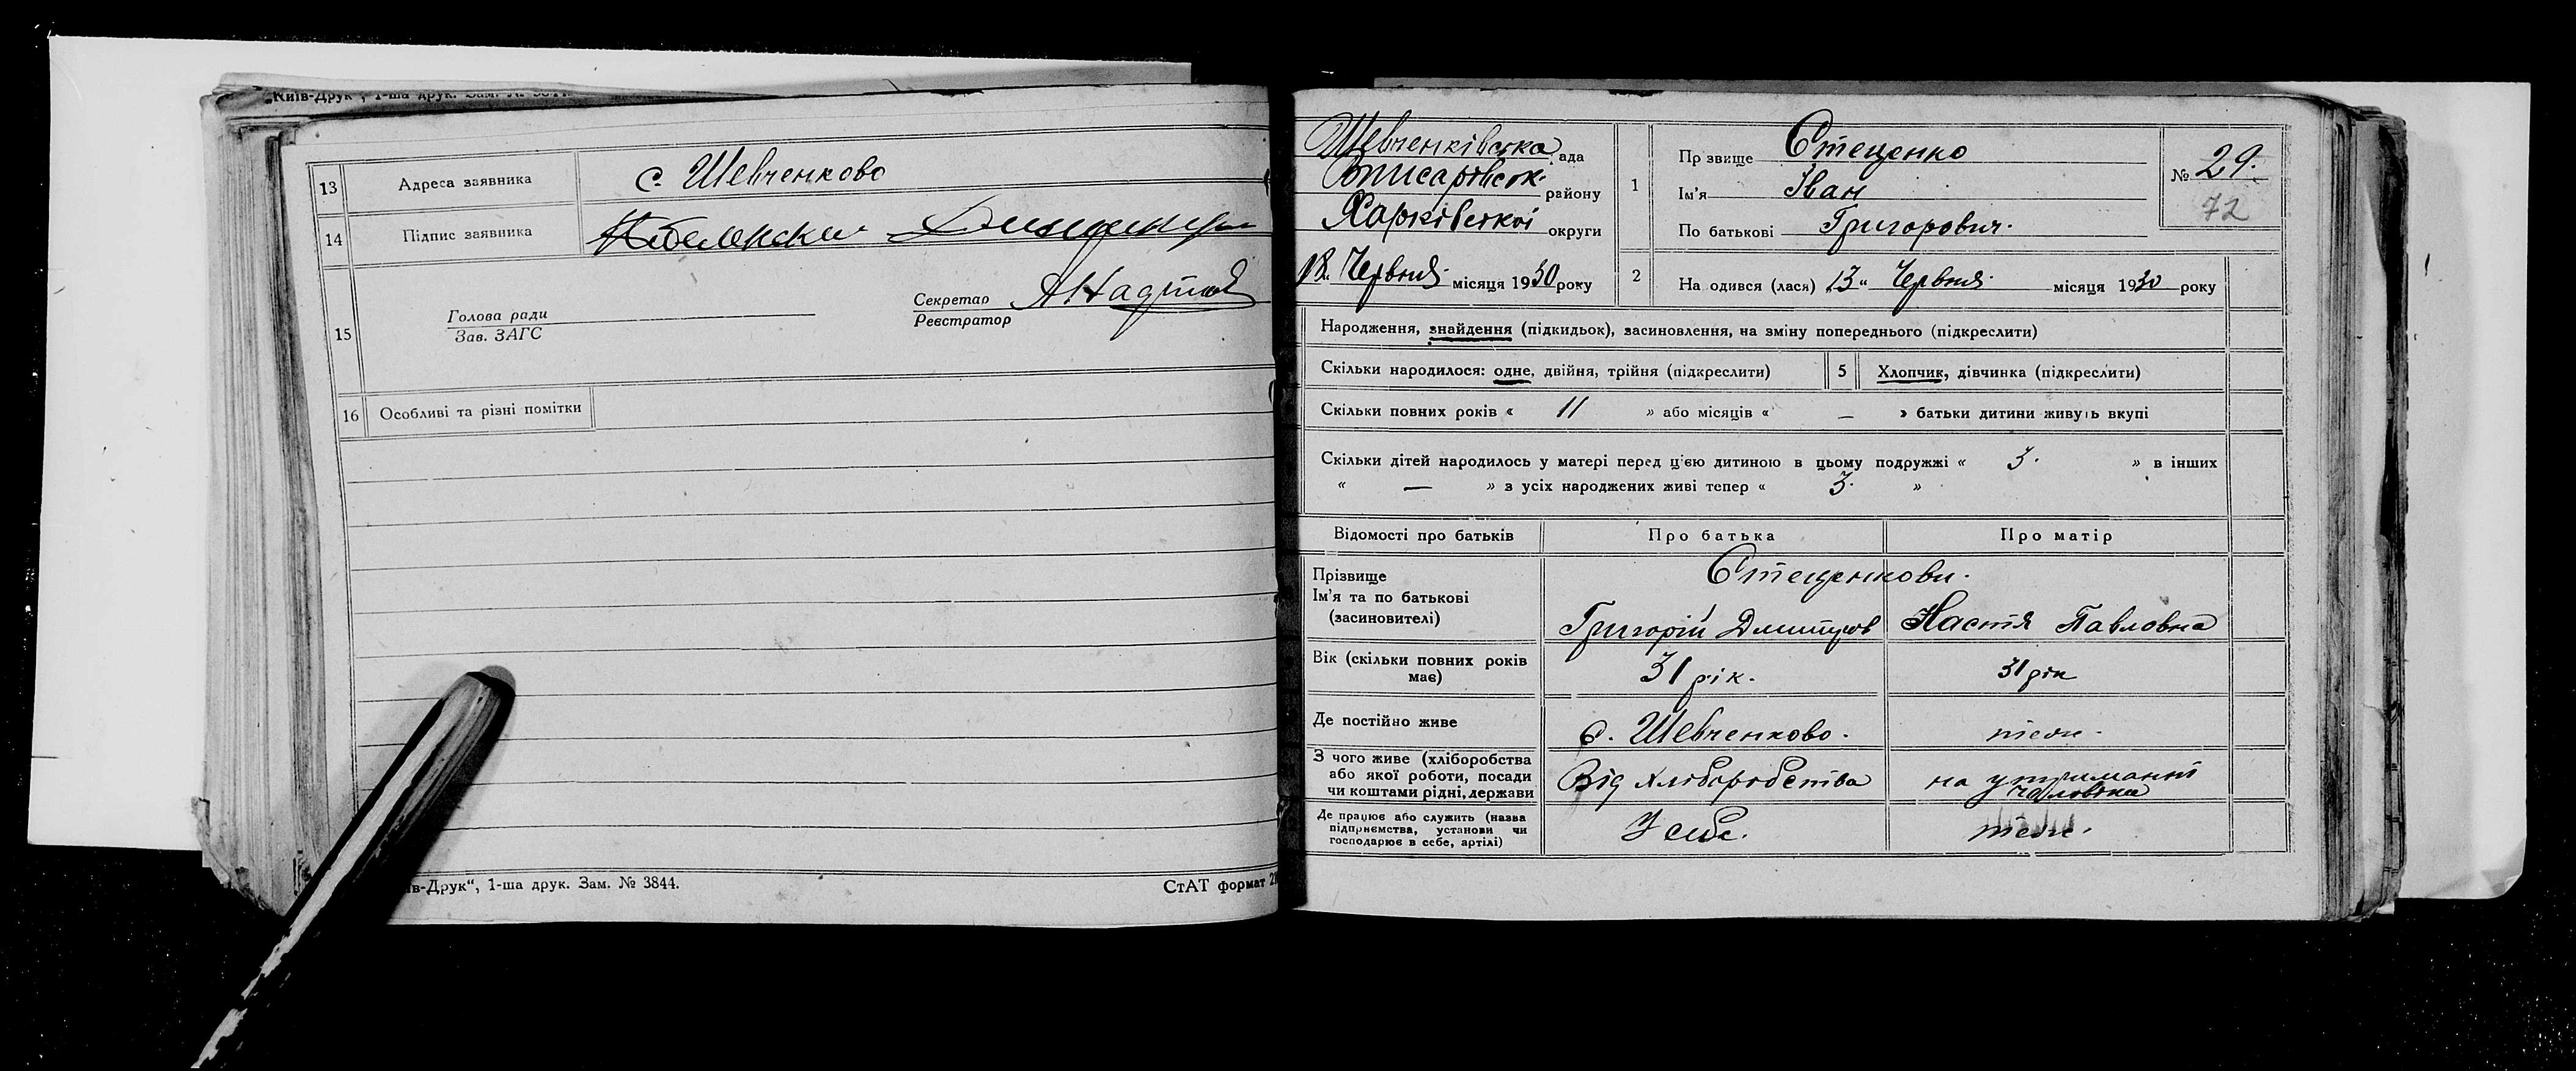 Київ-Друк", 1-ша друк. Зам. №
13 Адреса заявника с. Шевченково
14 Підпис заявника
Секретар
Реєстратор
15 Голова ради
Зав. ЗАГС
16 Особливі та різні помітки
ів-Друк", 1-ша друк. Зам. № 3844.
СтАТ формат
Шевченківська ада
району
Харківської округи
18 Червня місяця 1930 року
1 Пр звище Стеценко
Ім'я Іван
По батькові Григорович.
№ 29.
72
2 На одився (лася) 13 " Червня місяця 1930 року
Народження, знайдення (підкидьок), засиновлення, на зміну попереднього (підкреслити)
Скільки народилося: одне, двійня, трійня (підкреслити) 5 Хлопчик, дівчинка (підкреслити)
Скільки повних років « 11 » або місяців « — » батьки дитини живуть вкупі
Скільки дітей народилось у матері перед цією дитиною в цьому подружжі « 3. » в інших
« — » з усіх народжених живі тепер « 3. »
Відомості про батьків Про батька Про матір
Прізвище Стеценкови.
Ім'я та по батькові
(засиновителі) Григорій Дмитров Настя Павловна
Вік (скільки повних років має) 31 рік. 31 рік
Де постійно живе с. Шевченково. теж.
З чого живе (хліборобства
або якої роботи, посади
чи коштами рідні, держави Від хліборобства на утриманні чоловіка
Де працює або служить (назва
підприємства, установи чи
господарює в себе, артілі) У себе. теж.